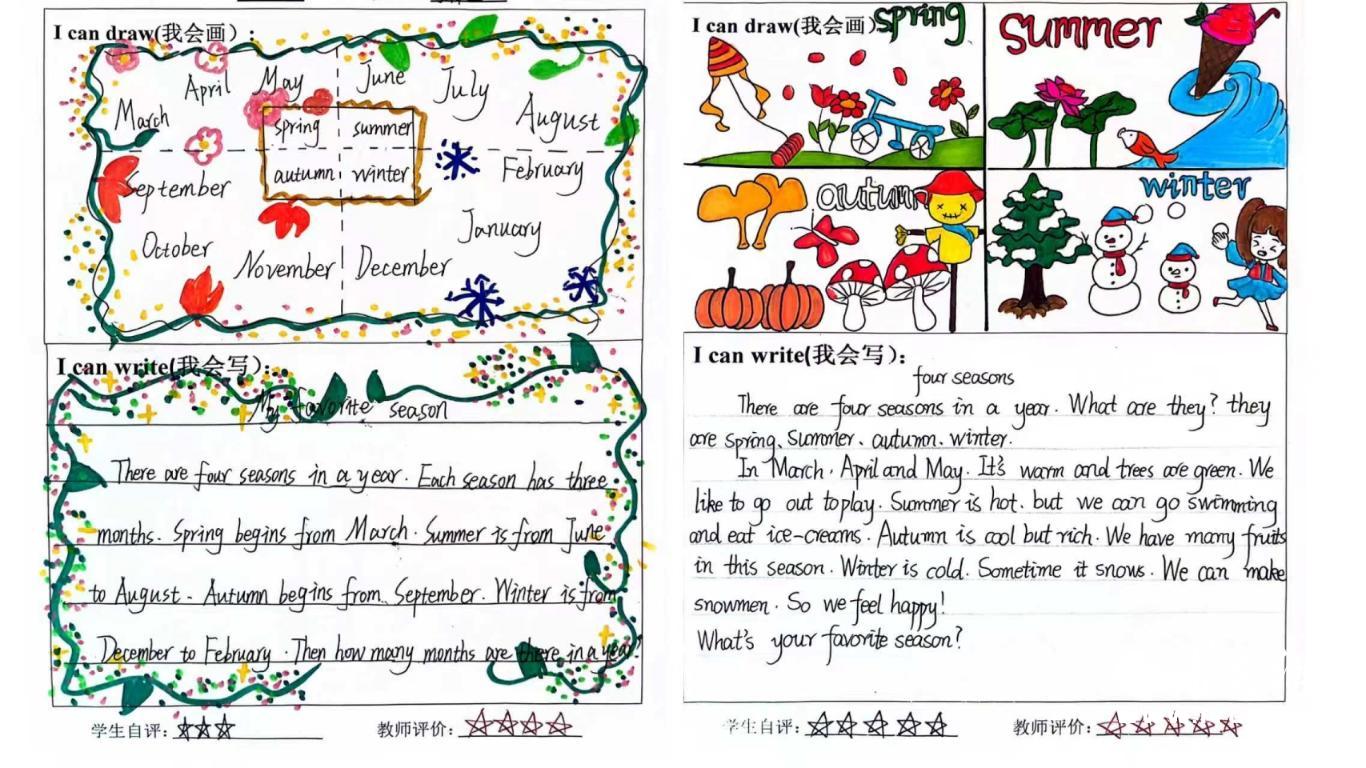 I can draw(我会画）:
March
April
May
June
July
August
spring
summer
autumn
winter
September
October
November
December
January
February
I can write(我会写）:
My favorite season
There are four seasons in a year. Each season has three
months. Spring begins from March. Summer is from June
to August. Autumn begins from September. Winter is from
December to February. Then how many months are there in a year?
学生自评:☆☆☆
教师评价:☆☆☆☆
I can draw(我会画）
spring
Summer
autumn
winter
I can write(我会写）:
four seasons
There are four seasons in a year. What are they? they
are spring、summer、autumn、winter.
In March, April and May. It's warm and trees are green. We
like to go out to play. Summer is hot, but we can go swimming
and eat ice-creams. Autumn is cool but rich. We have many fruits
in this season. Winter is cold. Sometime it snows. We can make
snowmen. So we feel happy!
What's your favorite season?
学生自评:☆☆☆☆☆
教师评价:☆☆☆☆☆